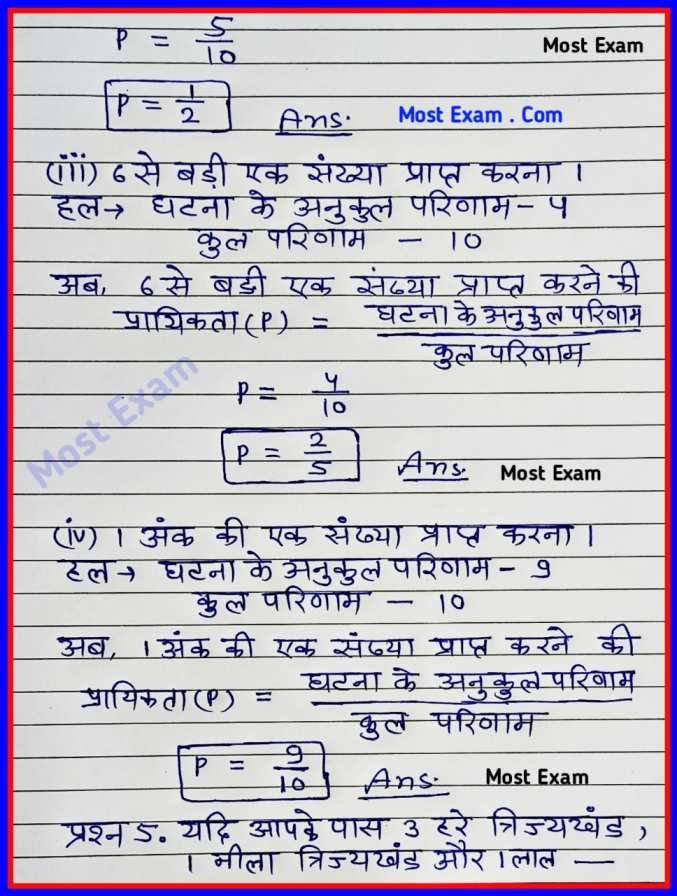 P = 5/10
Most Exam
P = 1/2 Ans. Most Exam . Com
(iii) 6 से बड़ी एक संख्या प्राप्त करना ।
हल→ घटना के अनुकुल परिणाम – 4
कुल परिणाम – 10
अब, 6 से बडी एक संख्या प्राप्त करने की
प्रायिकता (P) = घटना के अनुकुल परिणाम
कुल परिणाम
P = 4/10
Most Exam
P = 2/5 Ans. Most Exam
(iv) 1 अंक की एक संख्या प्राप्त करना ।
हल → घटना के अनुकुल परिणाम – 9
कुल परिणाम – 10
अब, 1 अंक की एक संख्या प्राप्त करने की
प्रायिकता (P) = घटना के अनुकुल परिणाम
कुल परिणाम
P = 9/10 Ans. Most Exam
प्रश्न 5. यदि आपके पास 3 हरे त्रिज्यखंड ,
1 नीला त्रिज्यखंड और 1 लाल —